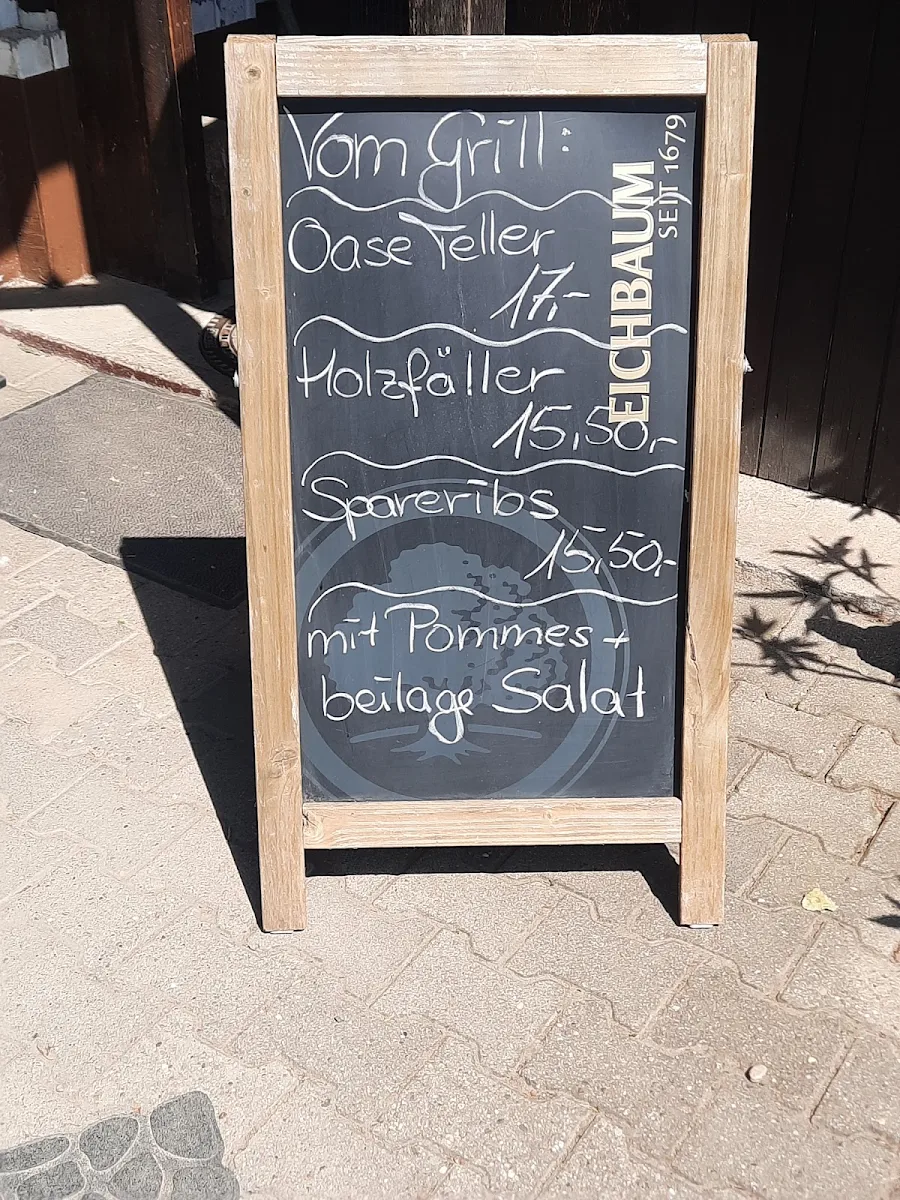 Vom Grill:
Oase Teller
17,-
Holzfäller
15,50,-
Spareribs
15,50,-
mit Pommes +
beilage Salat
EICHBAUM
SEIT 1679